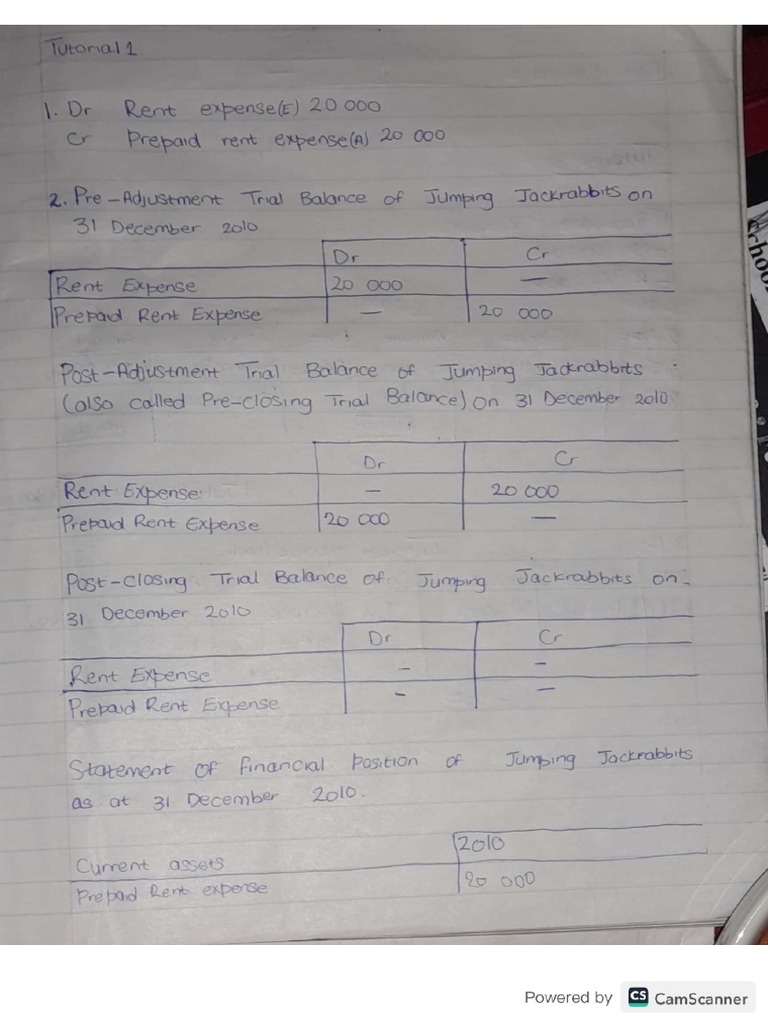 Tutorial 1
1. Dr Rent expense(E) 20 000
Cr Prepaid rent expense(A) 20 000
2. Pre-Adjustment Trial Balance of Jumping Jackrabbits on
31 December 2010
Dr Cr
Rent Expense 20 000 —
Prepaid Rent Expense — 20 000
Post-Adjustment Trial Balance of Jumping Jackrabbits
(also called Pre-closing Trial Balance) on 31 December 2010
Dr Cr
Rent Expense — 20 000
Prepaid Rent Expense 20 000 —
Post-Closing Trial Balance of Jumping Jackrabbits on
31 December 2010
Dr Cr
Rent Expense — —
Prepaid Rent Expense — —
Statement of financial position of Jumping Jackrabbits
as at 31 December 2010.
2010
Current assets
Prepaid Rent expense 20 000
Powered by CS CamScanner